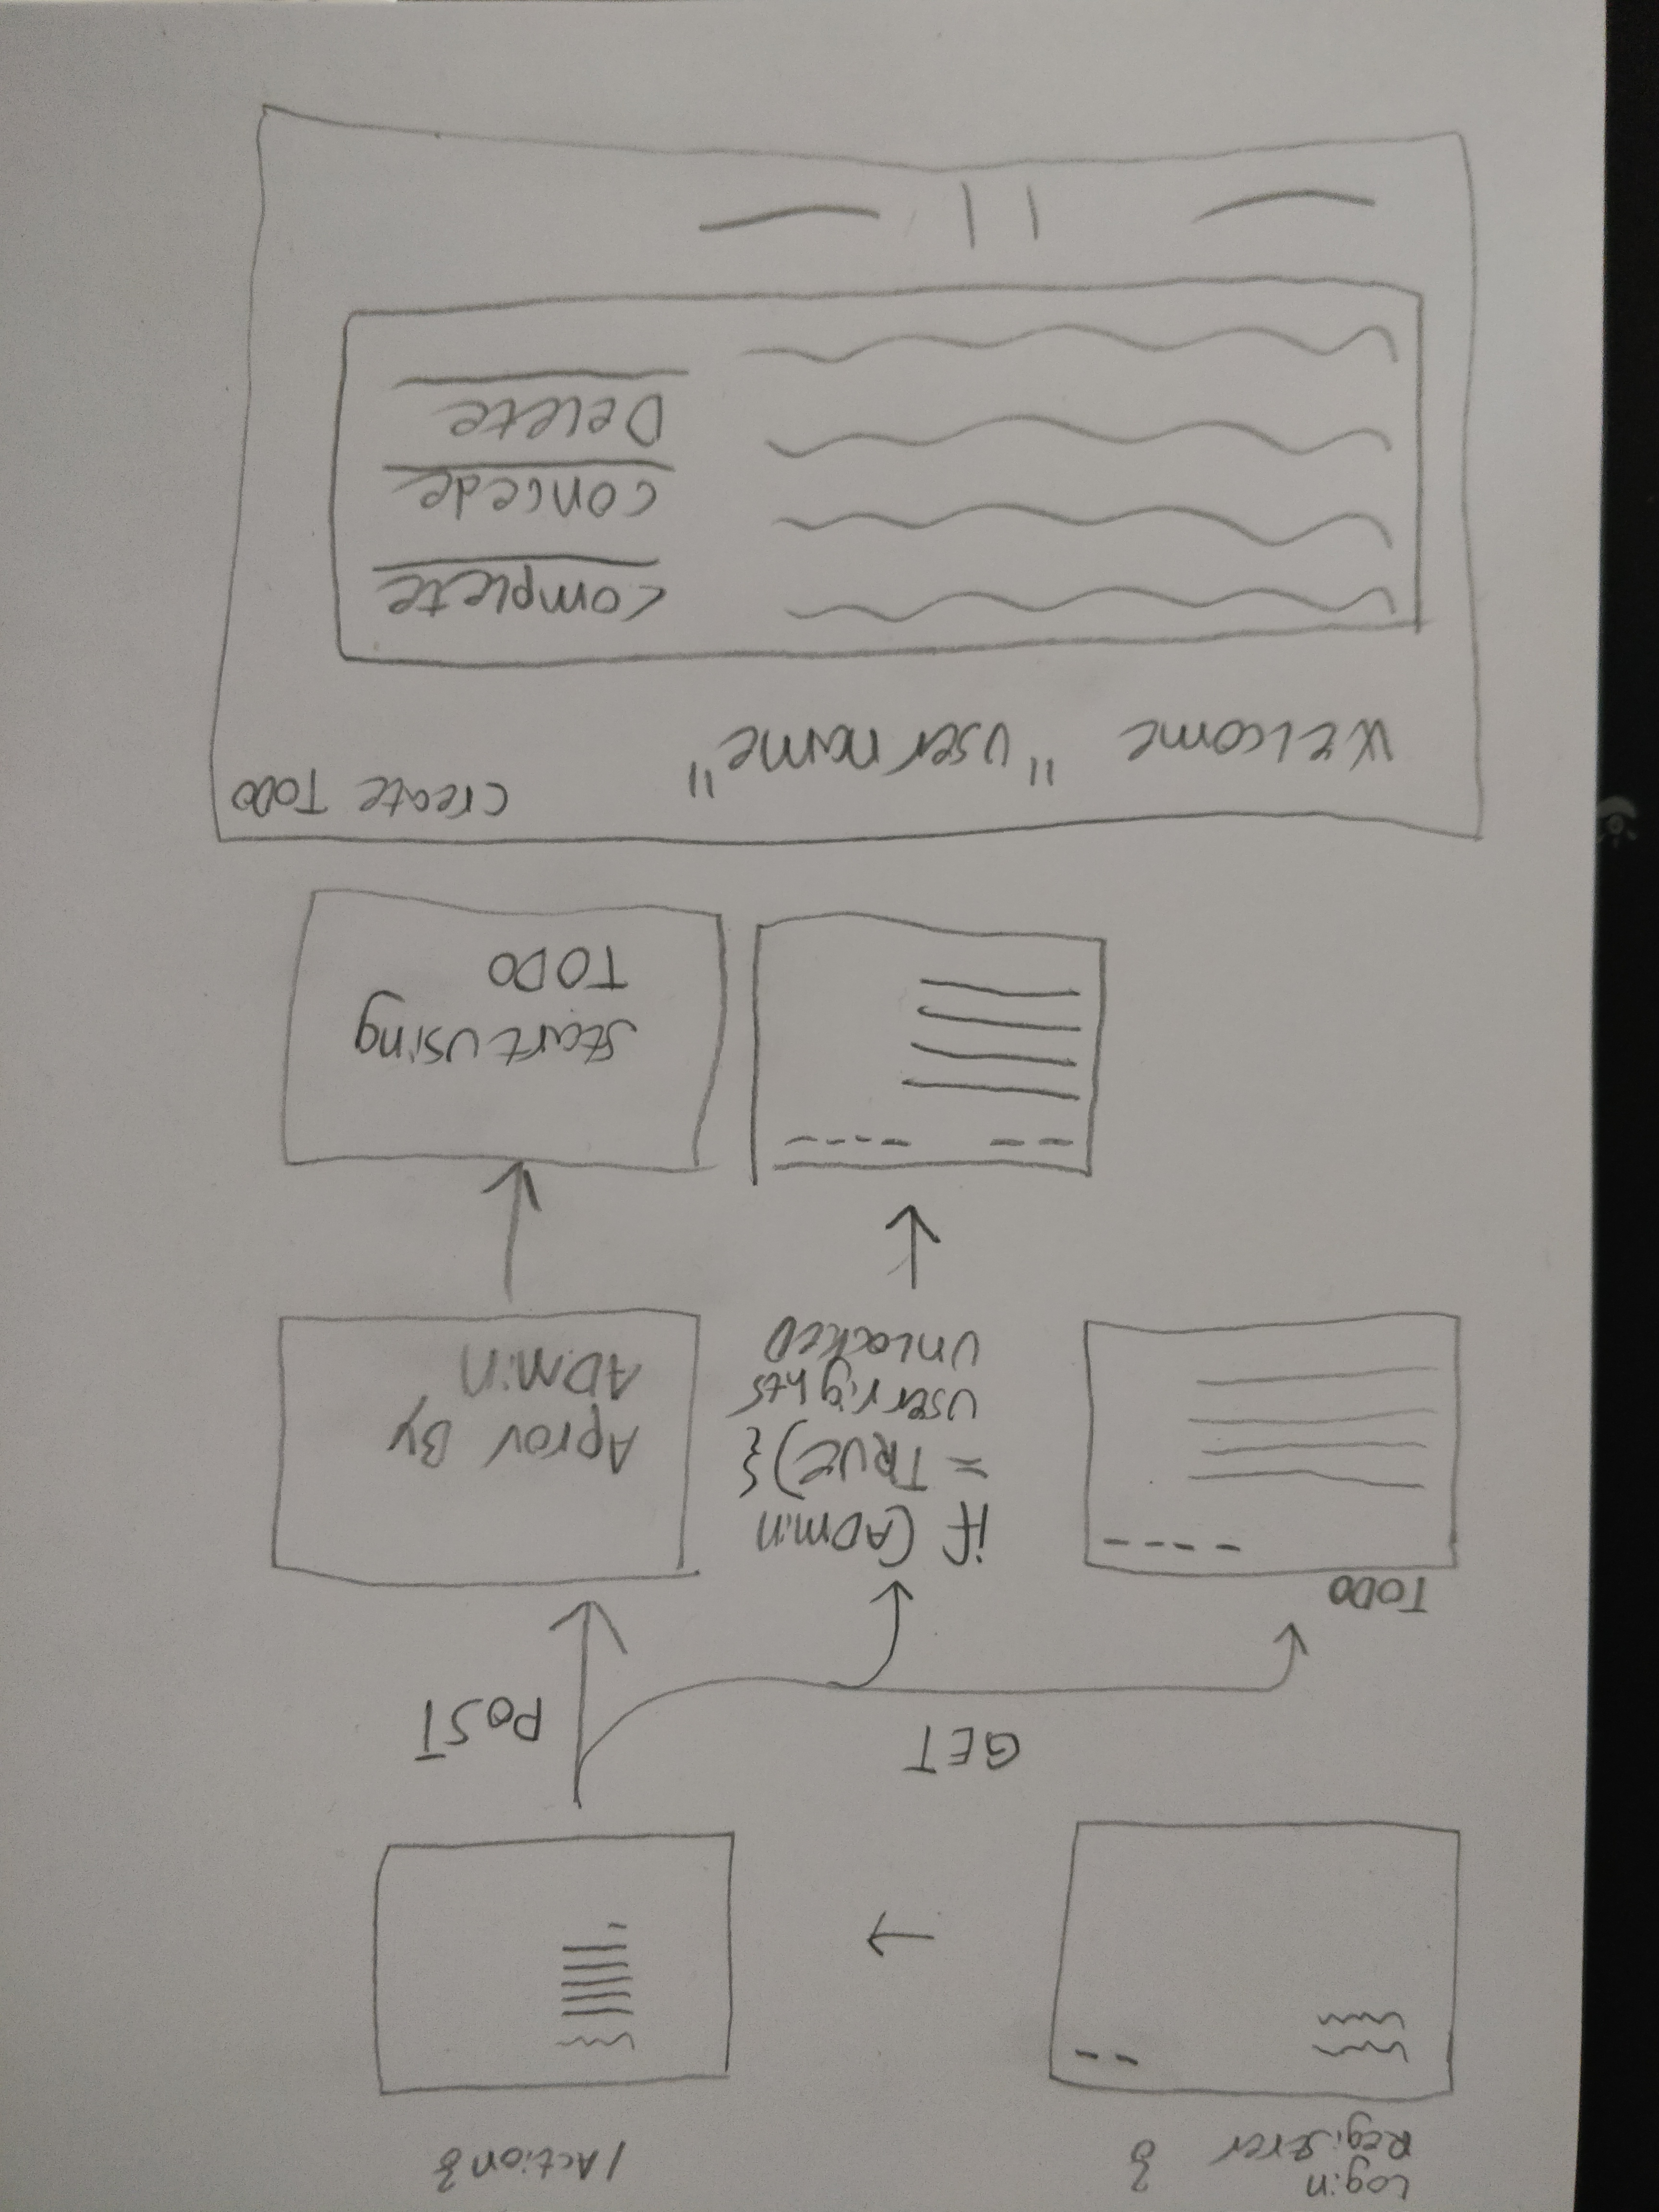 Login
Registrer }
/Action }
GET
POST
TODO
if (ADmin
= TRUE) {
user rights
UNLOCKED
Aprov By
ADMiN
start using
TODO
create TODO
Welcome "username"
complete
concede
Delete